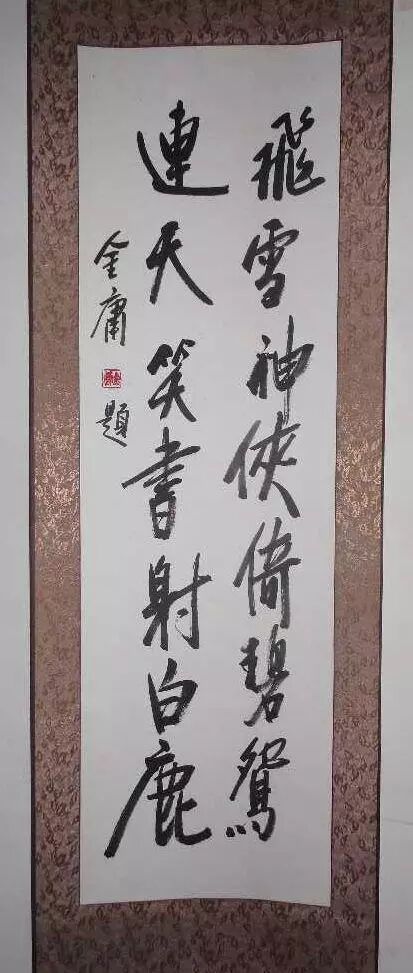 飛雪神俠倚碧鴛
連天笑書射白鹿
金庸題